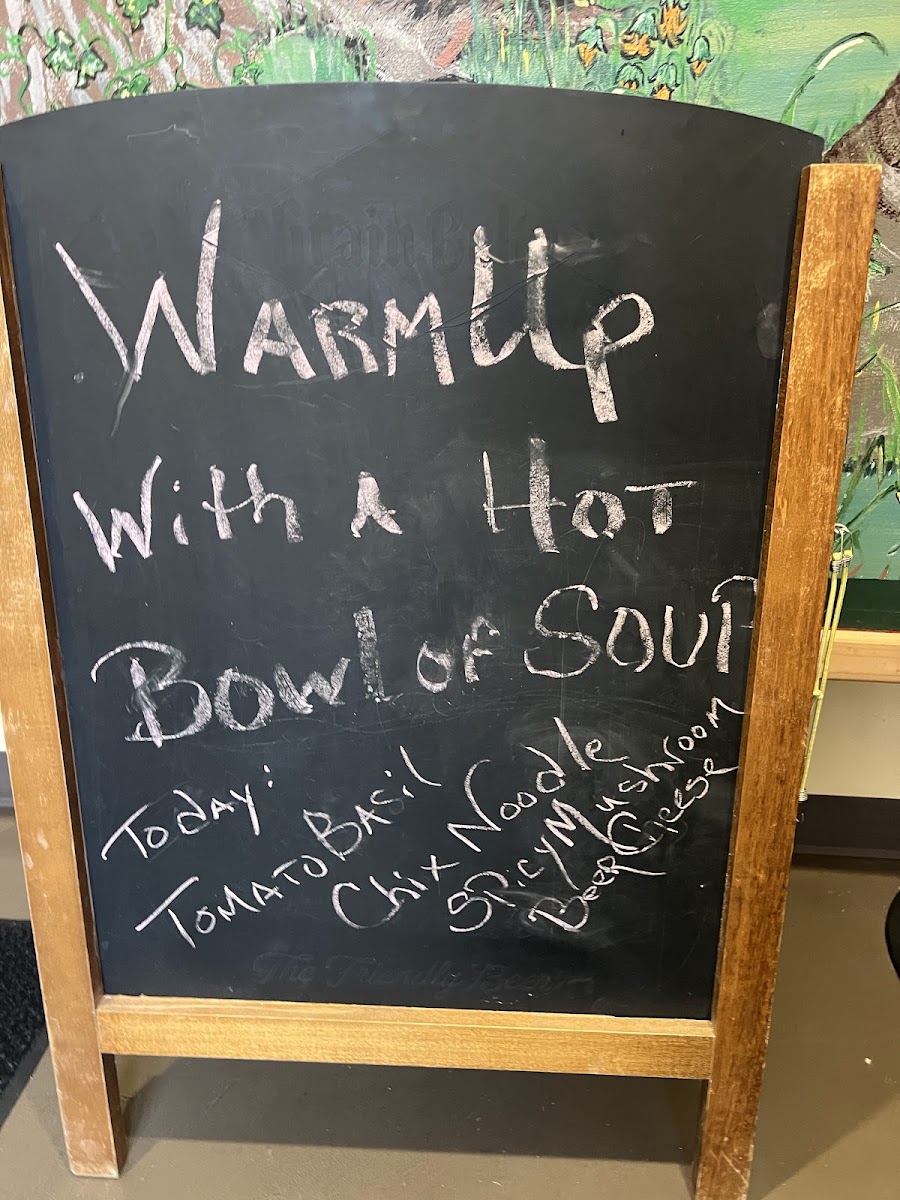 Warm Up
With a Hot
Bowl of Soup
Today:
Tomato Basil
Chix Noodle
Spicy Mushroom
Beer Cheese
The Friendly Beer